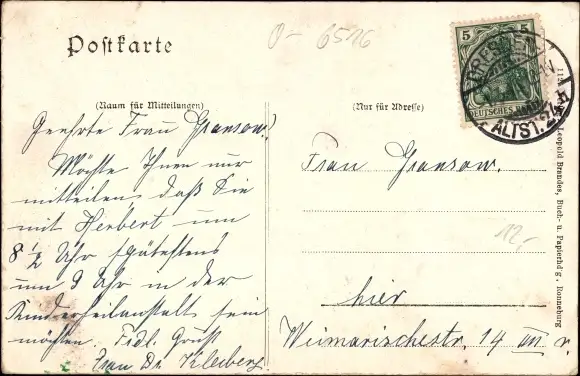 Postkarte
0- 6516
(Raum für Mitteilungen)
(Nur für Adresse)
5 5
DEUTSCHES REICH
DRESDEN
ALTST. 24
Geehrte Frau Gransow!
Möchte Ihnen nur
mitteilen, daß Sie
mit Herbert um
8 ½ Uhr spätestens
um 9 Uhr in der
Kinderheilanstalt sein
möchten. Frdl. Gruß
Frau Dr. Kleiberg
Frau Gransow.
12,-
hier
Weimarischestr. 14 III r.
Leopold Brandes, Buch- u. Papierhdg., Ronneburg